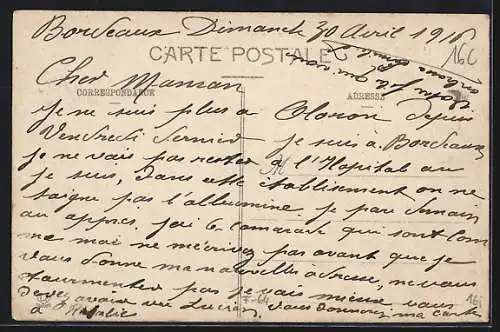 Bordeaux Dimanche 30 Avril 1916
16C
CARTE POSTALE
Cher Maman
CORRESPONDANCE ADRESSE
je ne suis plus a Oloron depuis
Vendredi dernier je suis a Bordeaux
je ne vais pas rester a l'Hopital ou
je suis, dans cette etablissement on ne
soigne pas l'albumine je pars demain
ou apres. j'ai 6 camarade qui sont com
me moi ne m'ecrivez pas avant que je
vous donne ma nouvelle adresse, ne vous
tourmenter pas je vais mieux vous
devez avoir vu Lucien, vous donnerez ma carte
a Natalie
F-64
16